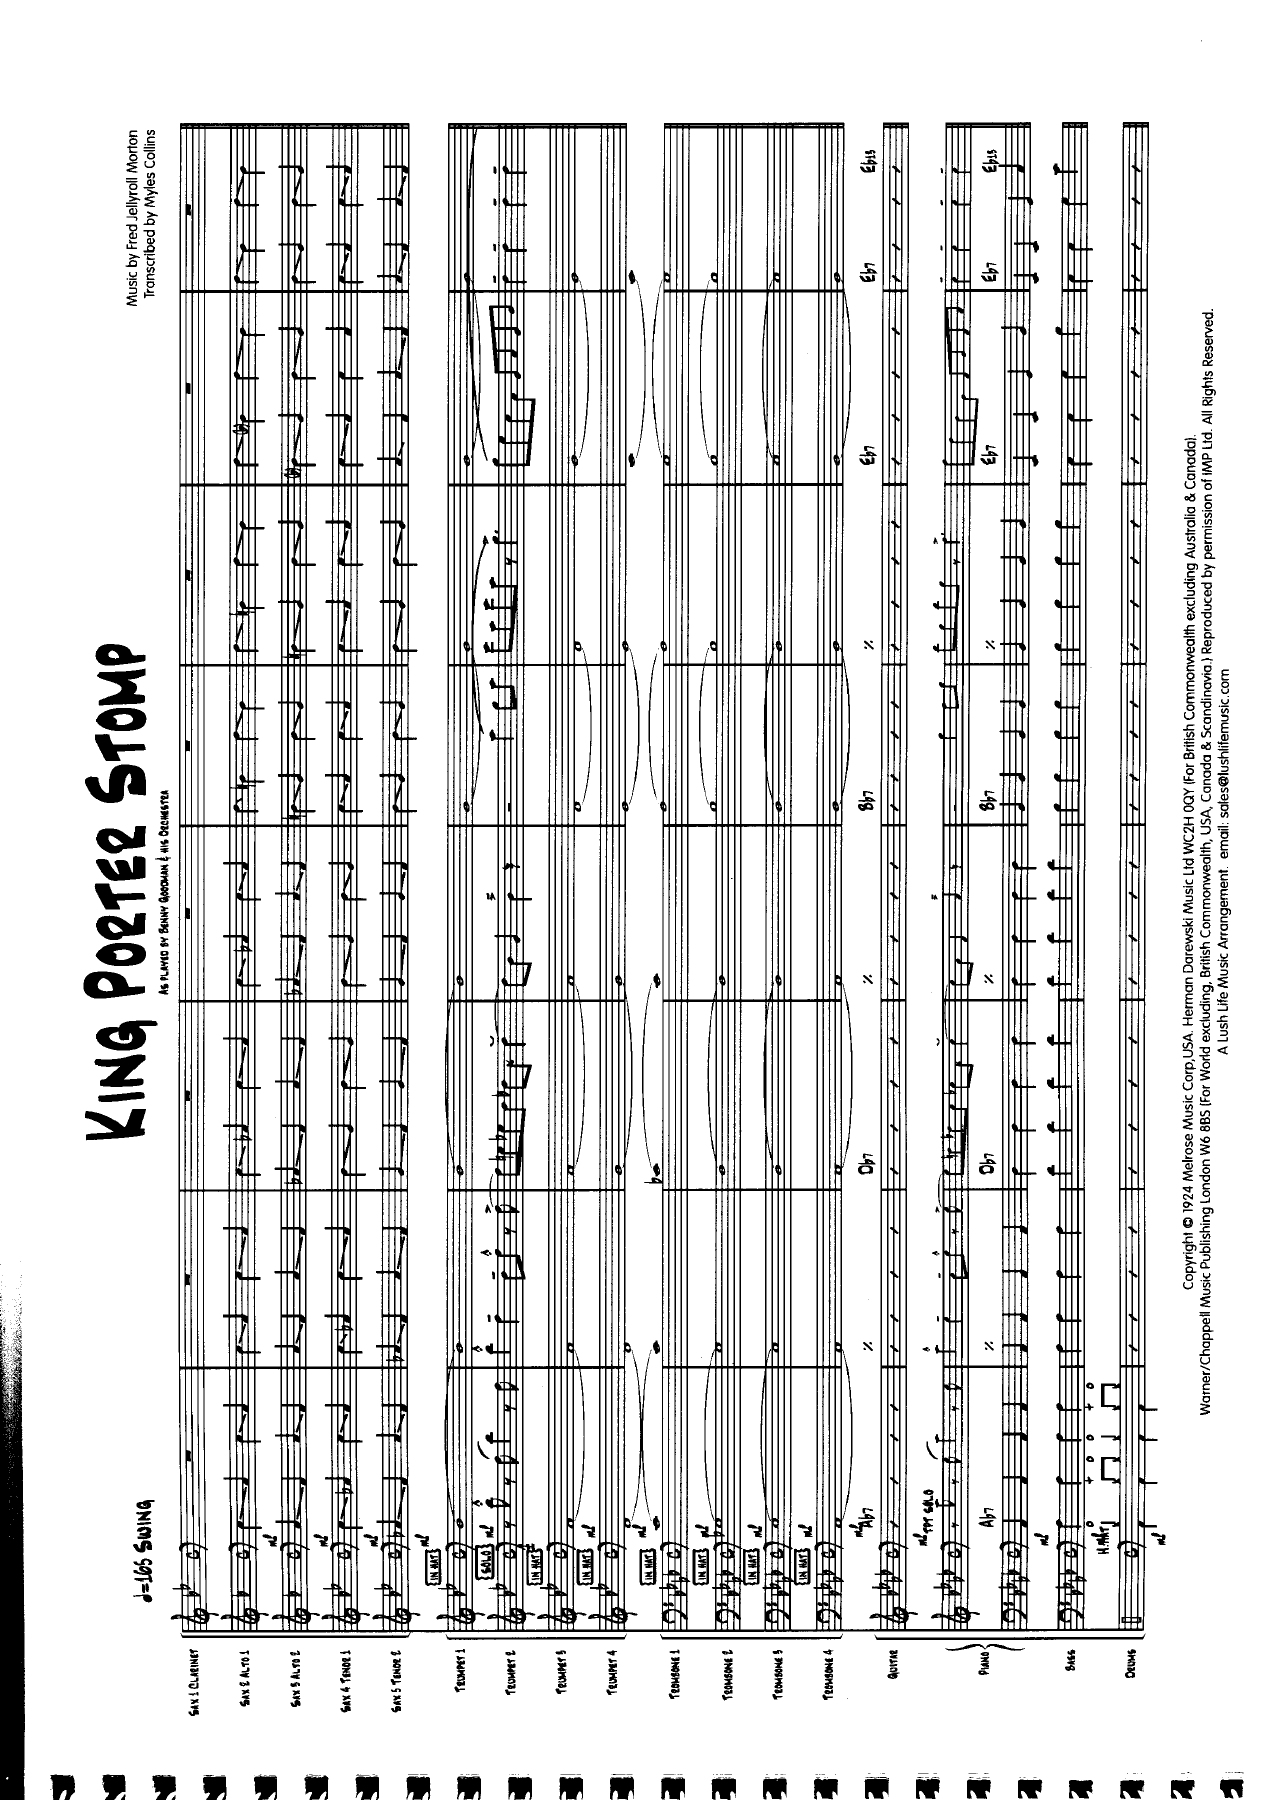 KING PORTER STOMP
AS PLAYED BY BENNY GOODMAN & HIS ORCHESTRA
Music by Fred Jellyroll Morton
Transcribed by Myles Collins
♩=165 SWING
SAX 1 CLARINET
SAX 2 ALTO 1
mf
SAX 3 ALTO 2
SAX 4 TENOR 1
mf
SAX 5 TENOR 2
mf
IN HAT
TRUMPET 1
SOLO
mf
TRUMPET 2
IN HAT
TRUMPET 3
IN HAT
mf
TRUMPET 4
IN HAT
mf
TROMBONE 1
IN HAT
mf
TROMBONE 2
IN HAT
mf
TROMBONE 3
IN HAT
mf
TROMBONE 4
mf
Ab7 % Db7 % Bb7 % Eb7 Eb7 Eb13
GUITAR
mf
TPT SOLO
PIANO
Ab7 % Db7 % Bb7 % Eb7 Eb7 Eb13
mf
BASS
H.HAT
DRUMS
mf
Copyright © 1924 Melrose Music Corp,USA. Herman Darewski Music Ltd WC2H 0QY (For British Commonwealth excluding Australia & Canada).
Warner/Chappell Music Publishing London W6 8BS (For World excluding, British Commonwealth, USA, Canada & Scandinavia.) Reproduced by permission of IMP Ltd. All Rights Reserved.
A Lush Life Music Arrangement. email: sales@lushlifemusic.com